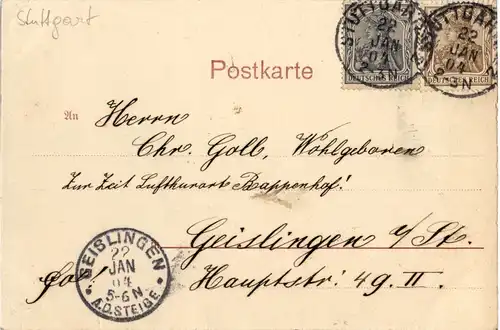 Stuttgart
STUTTGART
22
JAN
04
2-3N
STUTTGART
22
JAN
04
2-3N
DEUTSCHES REICH
DEUTSCHES REICH
Postkarte
An
Herrn
Chr. Goll, Wohlgeboren
Zur Zeit Luftkurort Rappenhof!
Geislingen a/St.
Hauptstr: 49. II.
GEISLINGEN
22
JAN
04
5-6N
A.D.STEIGE